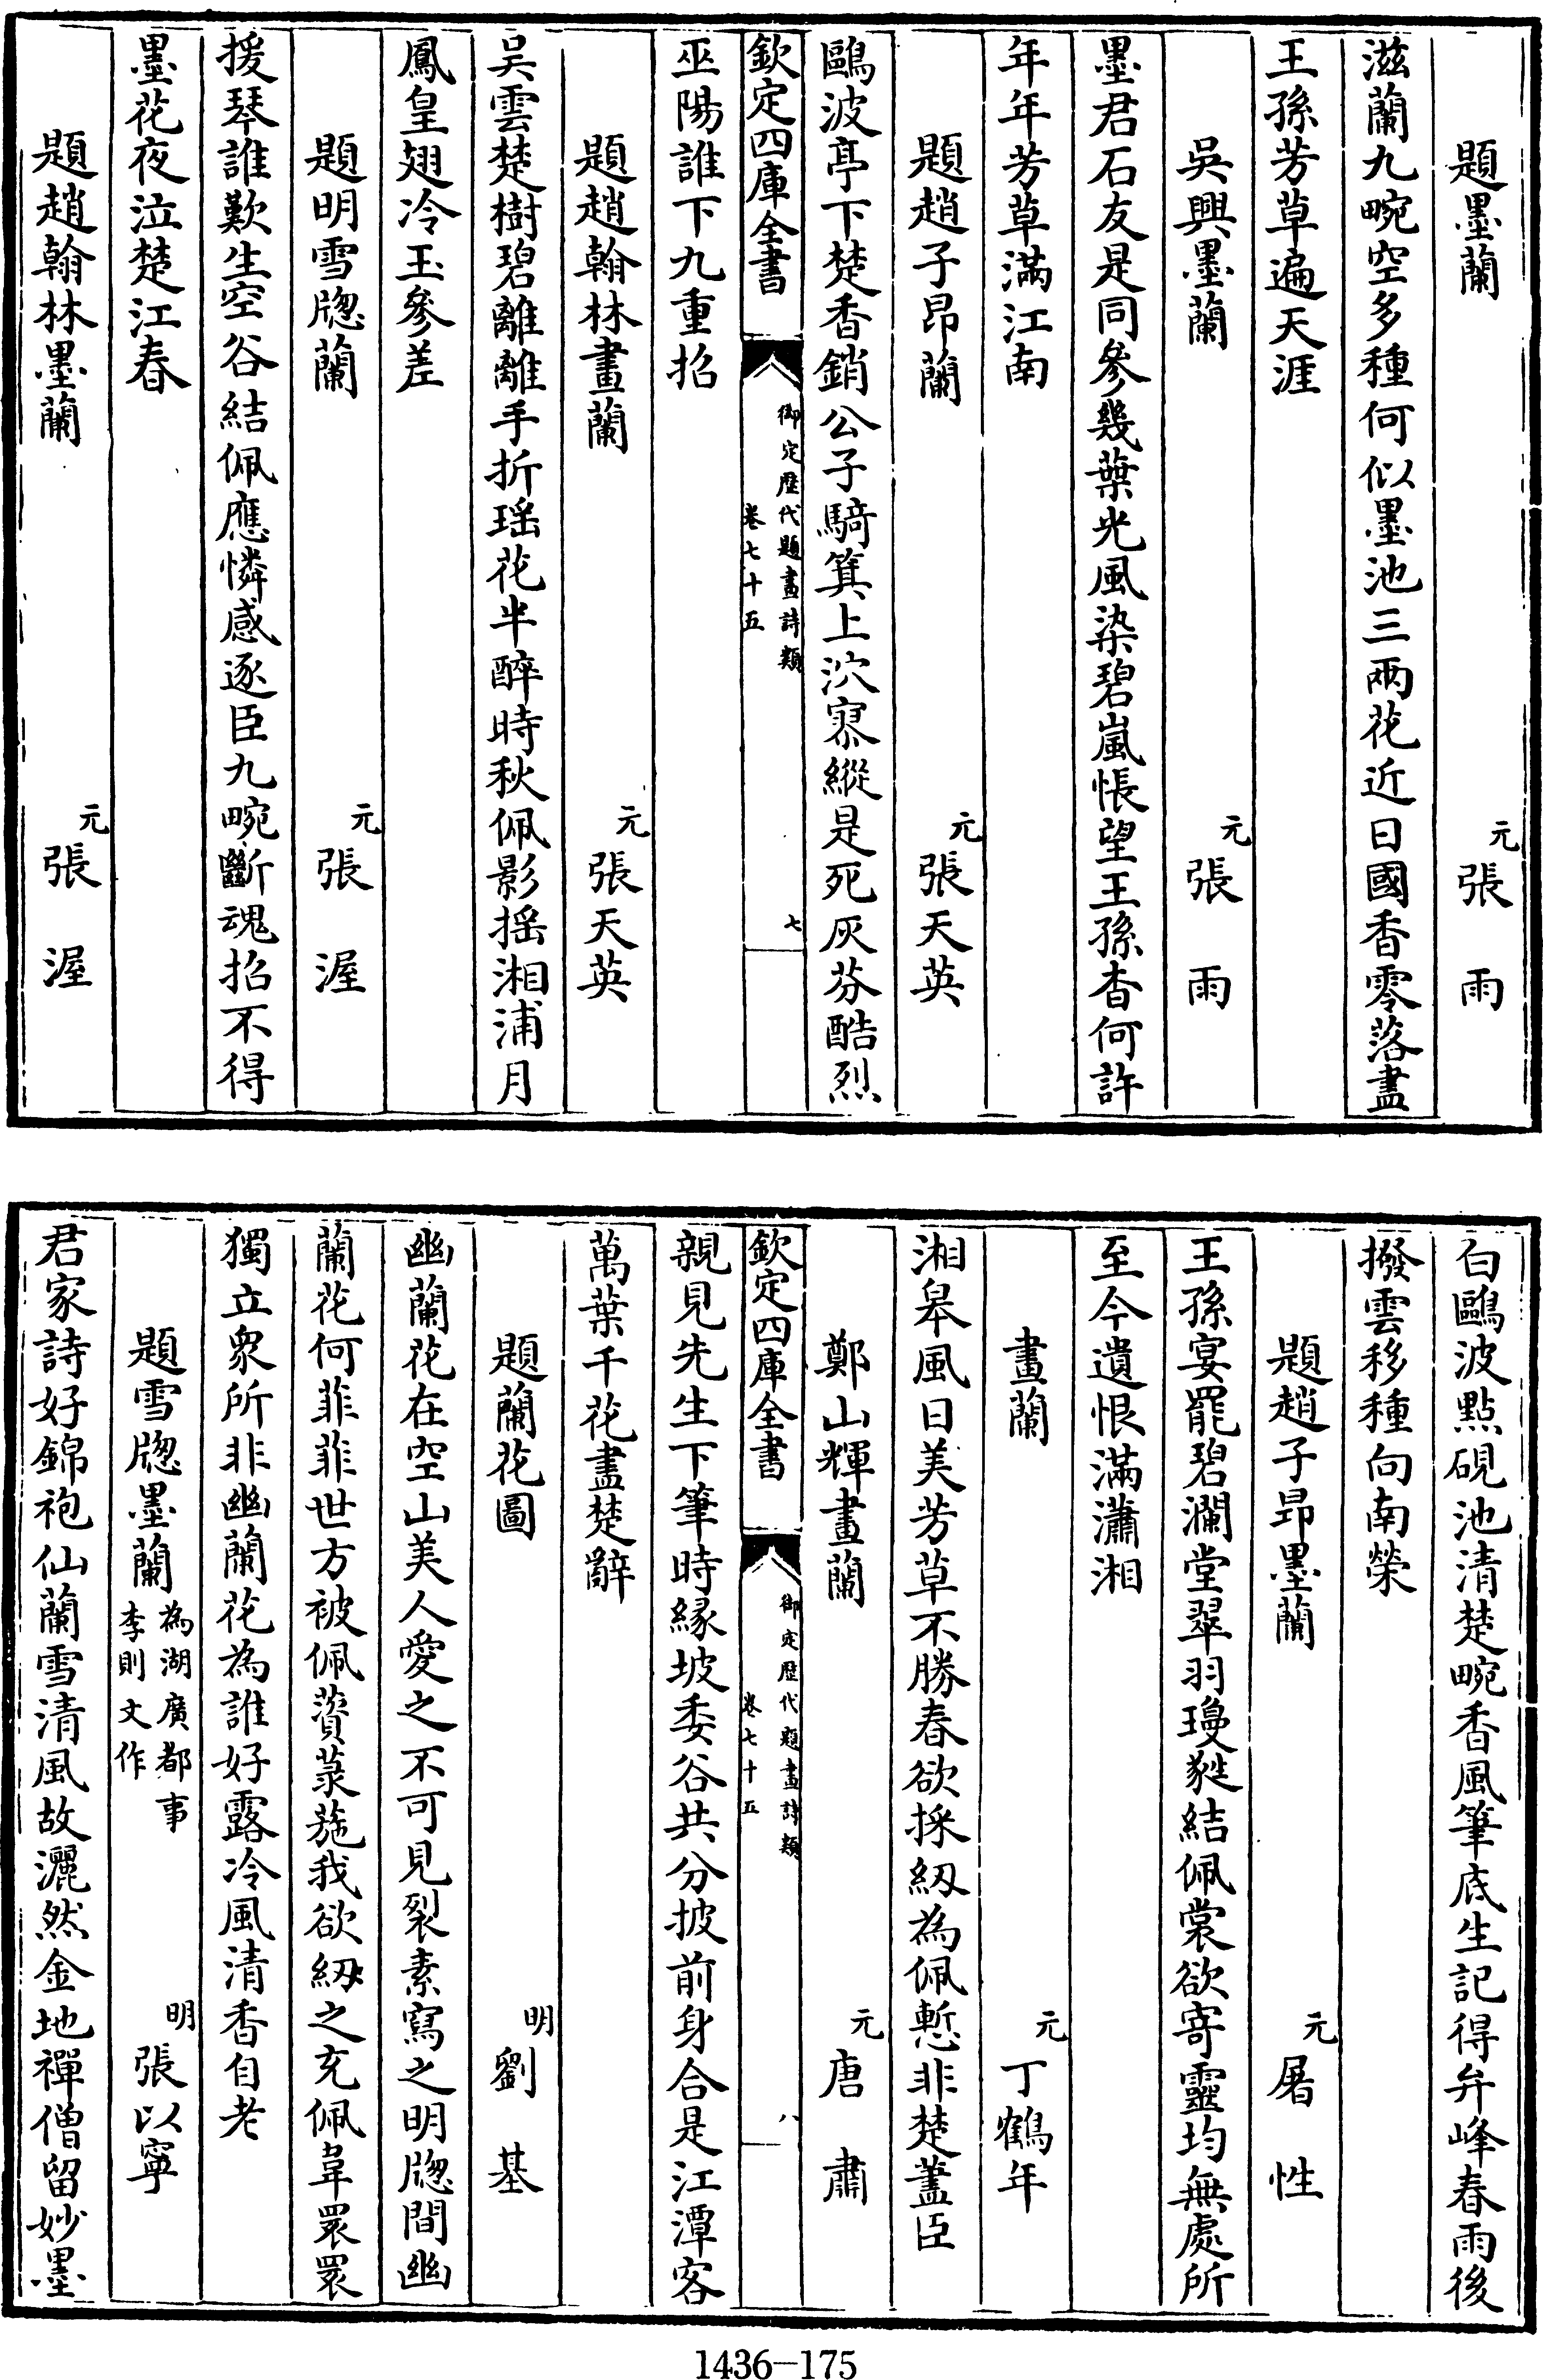 題墨蘭 元 張雨
滋蘭九畹空多種何似墨池三兩花近日國香零落盡
王孫芳草遍天涯
吳興墨蘭 元 張雨
墨君石友是同參幾葉光風染碧嵐悵望王孫杳何許
年年芳草滿江南
題趙子昂蘭 元 張天英
鷗波亭下楚香銷公子騎箕上泬寥縱是死灰芬酷烈
欽定四庫全書
御定歷代題畫詩類
卷七十五
七
巫陽誰下九重招
題趙翰林畫蘭 元 張天英
吳雲楚樹碧離離手折瑶花半醉時秋佩影揺湘浦月
鳳皇翅冷玉參差
題明雪牕蘭 元 張渥
援琴誰歎生空谷結佩應憐感逐臣九畹斷魂招不得
墨花夜泣楚江春
題趙翰林墨蘭 元 張渥
白鷗波點硯池清楚畹香風筆底生記得弁峰春雨後
撥雲移種向南榮
題趙子昂墨蘭 元 屠性
王孫宴罷碧瀾堂翠羽璁蕤結佩裳欲寄靈均無處所
至今遺恨滿瀟湘
畫蘭 元 丁鶴年
湘皋風日美芳草不勝春欲採紉為佩慙非楚藎臣
鄭山輝畫蘭 元 唐肅
欽定四庫全書
御定歷代題畫詩類
卷七十五
八
親見先生下筆時緣坡委谷共分披前身合是江潭客
萬葉千花盡楚辭
題蘭花圖 明 劉基
幽蘭花在空山美人愛之不可見裂素寫之明牕間幽
蘭花何菲菲世方被佩薋菉葹我欲紉之充佩韋褭褭
獨立衆所非幽蘭花為誰好露冷風清香自老
題雪牕墨蘭 為湖廣都事李則文作 明 張以寧
君家詩好錦袍仙蘭雪清風故灑然金地禪僧留妙墨
1436—175